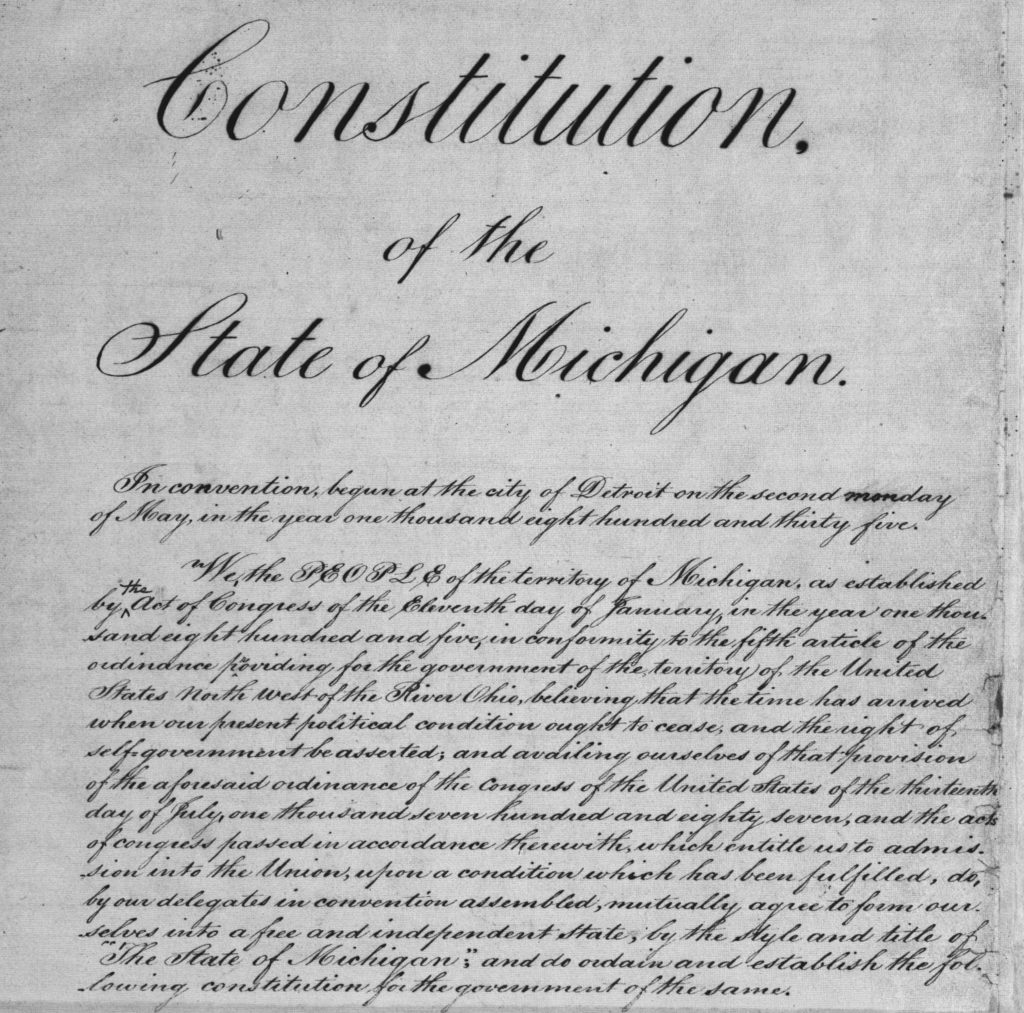 Constitution,
of the
State of Michigan.
In convention, begun at the city of Detroit on the second monday
of May, in the year one thousand eight hundred and thirty five.
We, the PEOPLE of the territory of Michigan, as established
by the Act of Congress of the Eleventh day of January, in the year one thou-
sand eight hundred and five, in conformity to the fifth article of the
ordinance providing for the government of the territory of the United
States North West of the River Ohio, believing that the time has arrived
when our present political condition ought to cease, and the right of
self-government be asserted; and availing ourselves of that provision
of the aforesaid ordinance of the Congress of the United States of the thirteenth
day of July, one thousand seven hundred and eighty seven, and the acts
of congress passed in accordance therewith, which entitle us to admis-
sion into the Union, upon a condition which has been fulfilled, do,
by our delegates in convention assembled, mutually agree to form our-
selves into a free and independent state, by the style and title of
"The State of Michigan"; and do ordain and establish the fol-
lowing constitution for the government of the same.